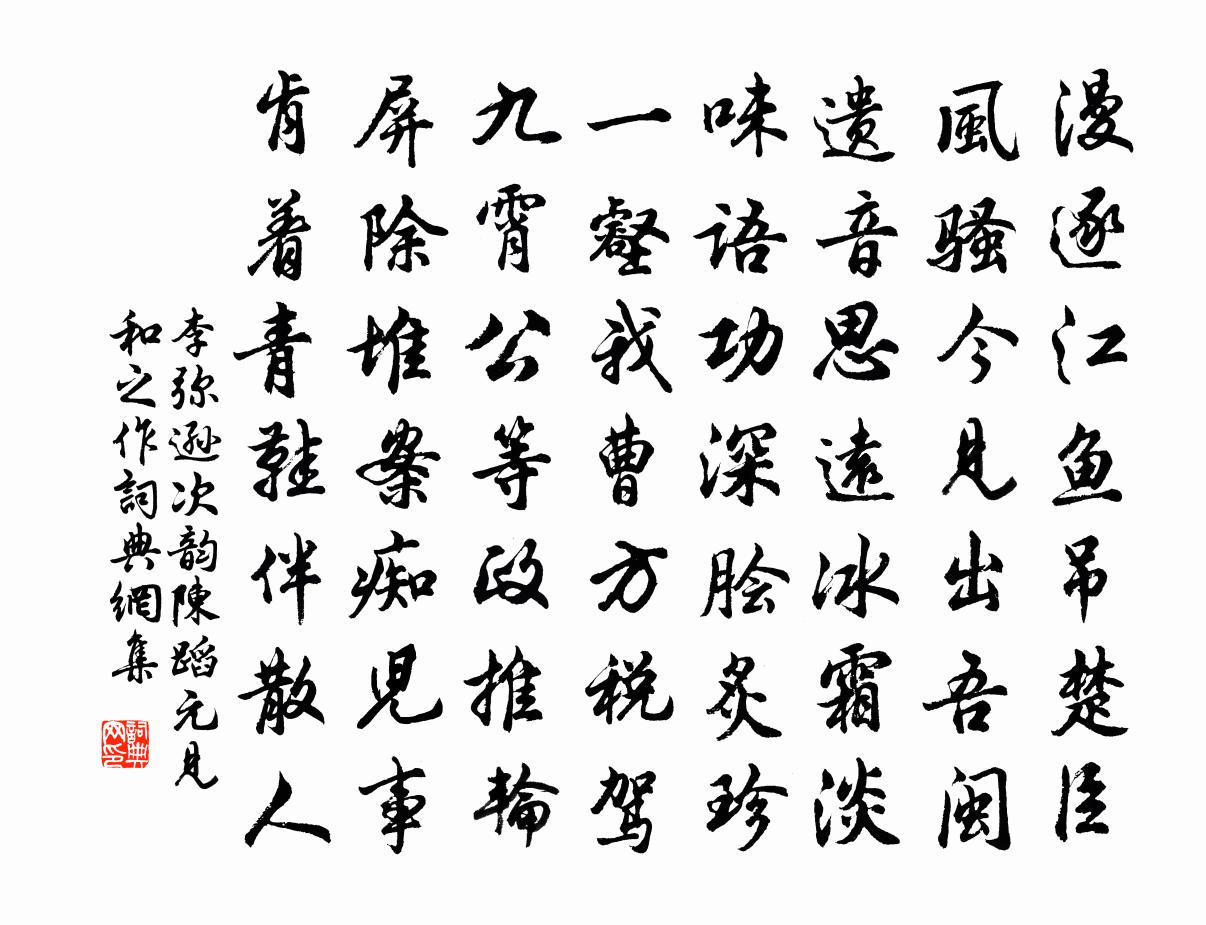 漫逐江鱼吊楚臣
風骚今見出吾闽
遗音思遠冰霜淡
味语功深脍炙珍
一壑我曹方税驾
九霄公等政推輪
屏除堆案痴児事
肯着青鞋伴散人
李弥遜次韵陳蹈元見
和之作詞典網集
詞典
网印